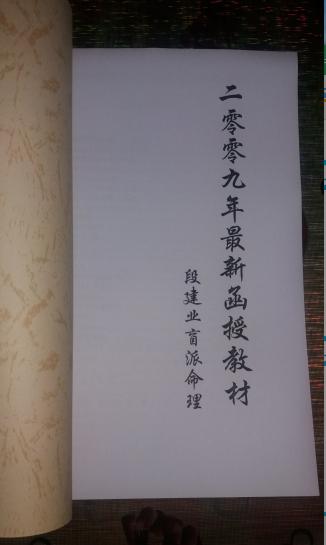 二零零九年最新函授教材
段建业盲派命理